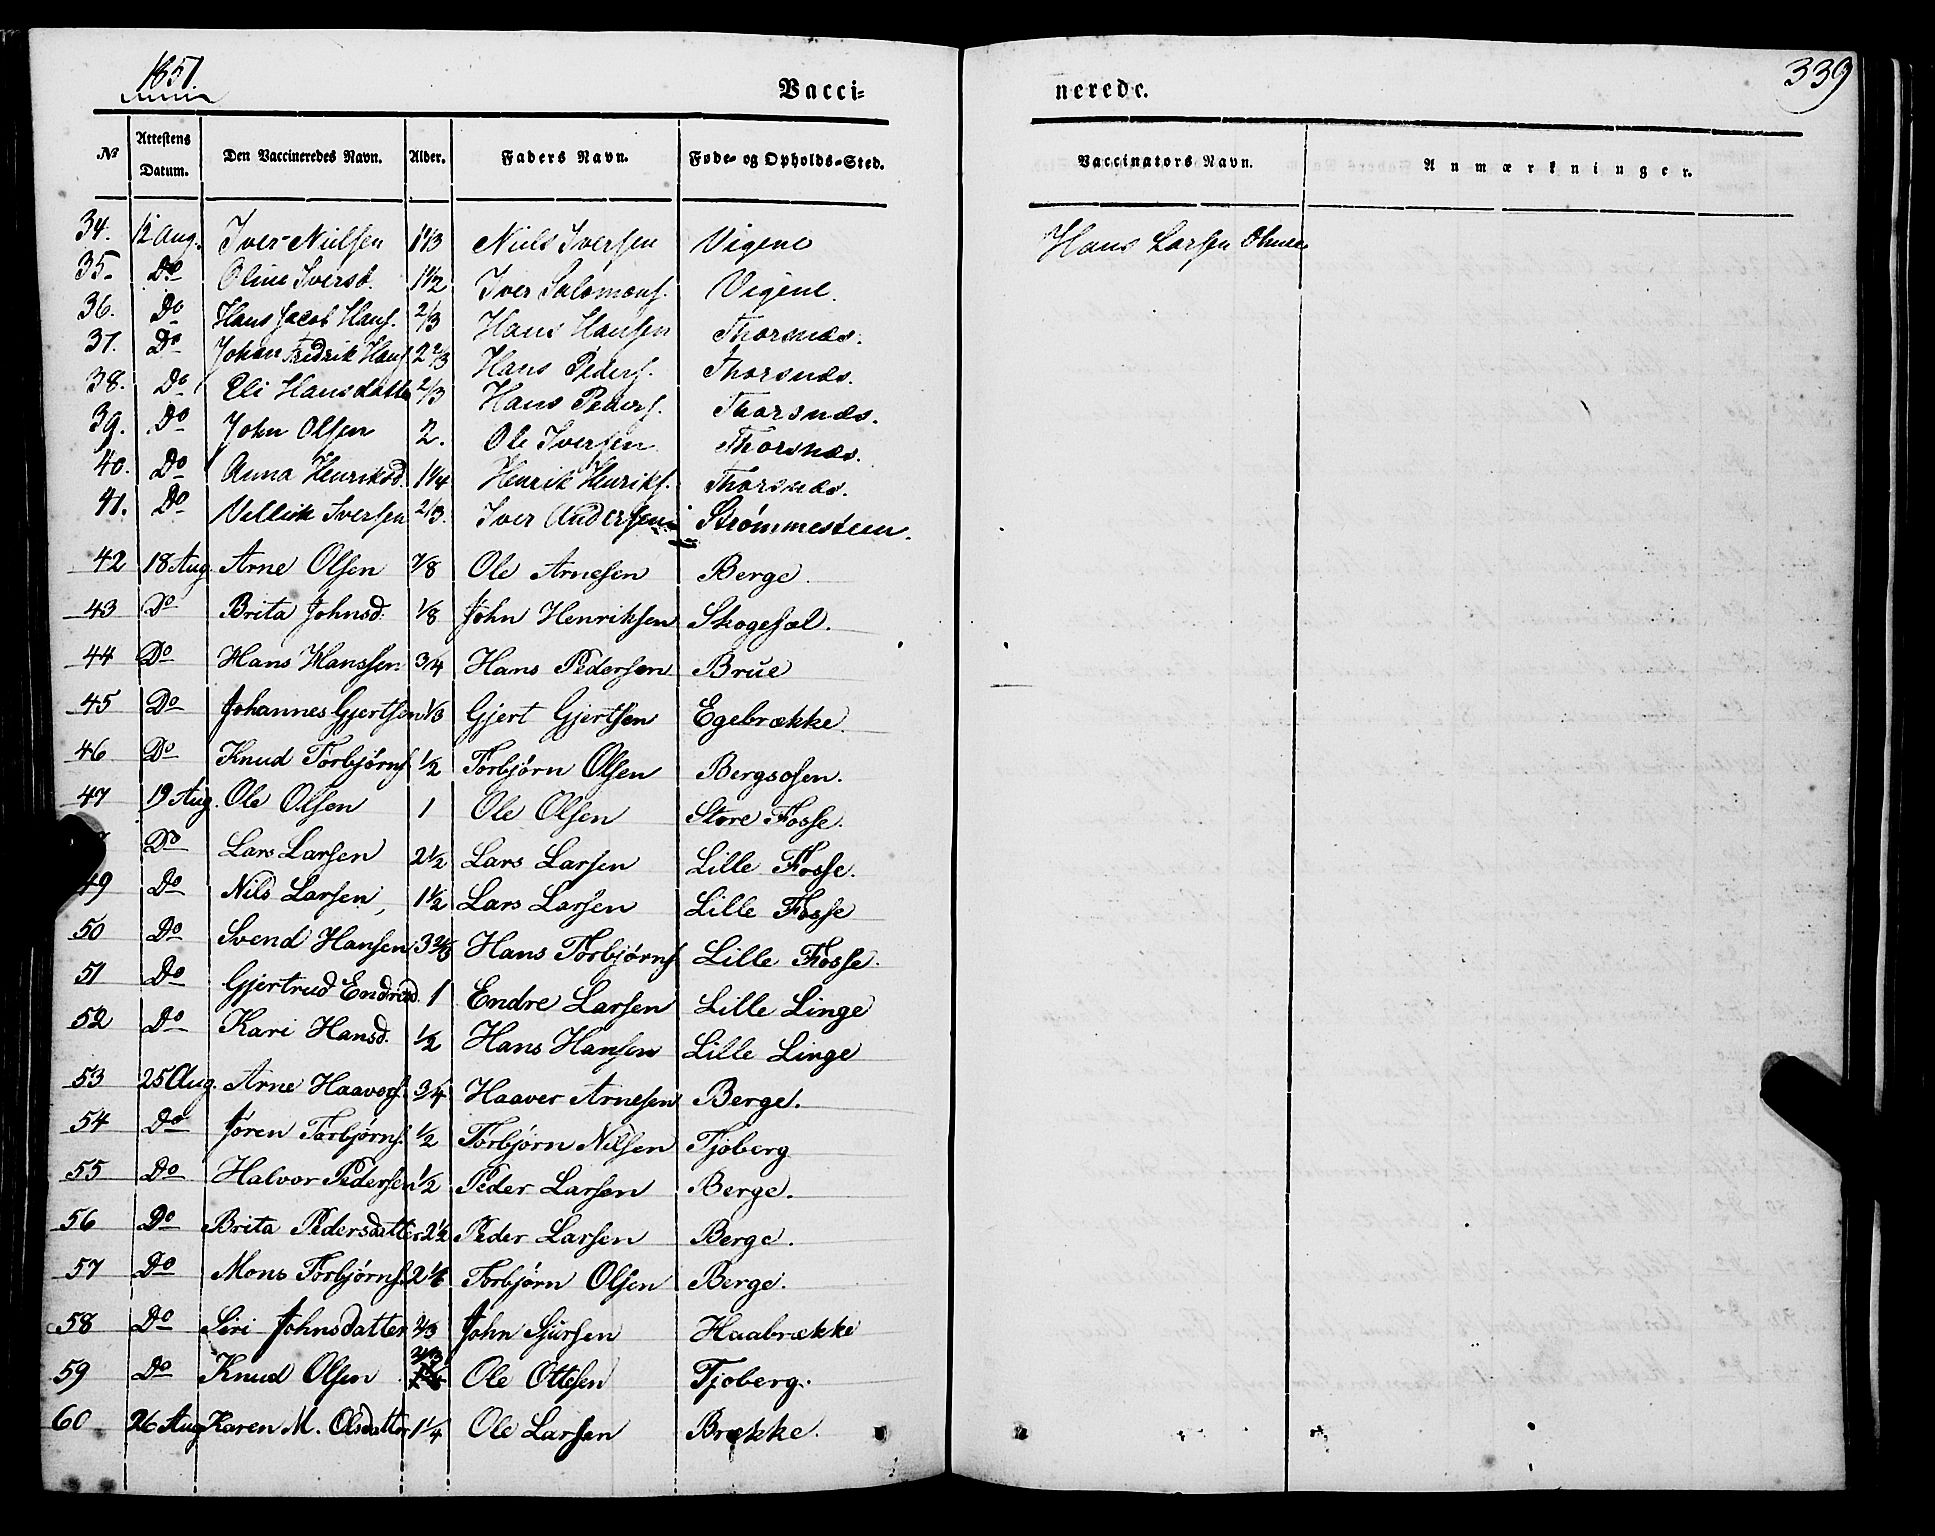 1851
339
Vacci-
nerede.
No
Attestens Datum.
Den Vaccineredes Navn.
Alder.
Faders Navn.
Føde- og Opholds-Sted.
Vaccinators Navn.
Anmærkninger.
34. 12 Aug. Iver Nielsen 1 1/3 Niels Iversen Vigene Hans Larsen
35. Do Oline Iversd. 1 1/2 Iver Salomons. Vigene.
36. Do Hans Jacob Hans. 2/3 Hans Hansen Thorsnæs.
37. Do Johan Fredrik Hans. 2 2/3 Hans Peders. Thorsnæs.
38. Do Eli Hansdatter 2/3 Hans Peders. Thorsnæs.
39. Do John Olsen 2. Ole Iversen Thorsnæs.
40. Do Anna Henriksd. 1 1/4 Henrik Henriks. Thorsnæs.
41. Do Iversen 2/3. Iver Andersen Strømmesteen.
42 18 Aug. Arne Olsen 7/8 Ole Arnesen Berge.
43 Do Brita Johnsd. 1/8 John Henriksen Skogesæl.
44 Do Hans Hanssen 3/4 Hans Pedersen Brue
45 Do Johannes Gjertsen 1/3 Gjert Gjertsen Egebrække.
46 Do Knud Torbjørns. 1/2 Torbjørn Olsen Bergsosen.
47 19 Aug. Ole Olsen 1 Ole Olsen Store Fosse.
Do Lars Larsen 2 1/2 Lars Larsen Lille Fosse.
49 Do Nils Larsen, 1 1/2 Lars Larsen Lille Fosse
50 Do Svend Hansen 3 2/3 Hans Torbjørns. Lille Fosse.
51 Do Gjertrud Endresd. 1 Endre Larsen Lille Linge
52 Do Kari Hansd. 1/2 Hans Hansen Lille Linge
53 25 Aug. Arne Haavers. 3/4 Haaver Arnesen Berge.
54 Do Jøren Torbjørns. 1/2 Torbjørn Nilsen Tjoberg
55 Do Halvor Pedersen 1/2 Peder Larsen Berge.
56 Do Brita Pedersdatter 2 1/2 Peder Larsen Berge.
57 Do Mons Torbjørns. 2 1/6 Torbjørn Olsen Berge.
58 Do Siri Johnsdatter 2/3 John Sjursen Haabrække
59 Do Knud Olsen 2/3 Ole Ottesen Tjoberg.
60 26 Aug Karen M. Olsdatter 1 1/4 Ole Larsen Brække.